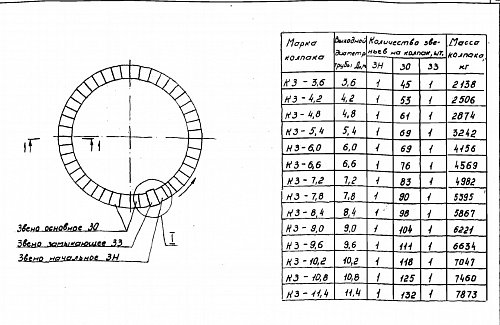 Звено основное ЗО
Звено замыкающее ЗЗ
Звено начальное ЗН
I
1
1
Марка колпака Выходной диаметр трубы Д,м Количество звеньев на колпак, шт. Масса колпака, кг
ЗН ЗО ЗЗ
КЗ - 3,6 3,6 1 45 1 2138
КЗ - 4,2 4,2 1 53 1 2506
КЗ - 4,8 4,8 1 61 1 2874
КЗ - 5,4 5,4 1 69 1 3242
КЗ - 6,0 6,0 1 69 1 4156
КЗ - 6,6 6,6 1 76 1 4569
КЗ - 7,2 7,2 1 83 1 4982
КЗ - 7,8 7,8 1 90 1 5395
КЗ - 8,4 8,4 1 98 1 5867
КЗ - 9,0 9,0 1 104 1 6221
КЗ - 9,6 9,6 1 111 1 6634
КЗ - 10,2 10,2 1 118 1 7047
КЗ - 10,8 10,8 1 125 1 7460
КЗ - 11,4 11,4 1 132 1 7873